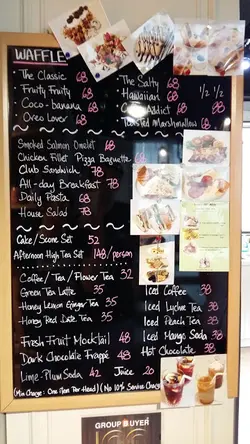 WAFFLE
· The Classic 68
· Fruity Fruity 68
· Coco-banana 68
· Oreo Lover 68
· The Salty 68
· Hawaiian 68
Addict 68
1/2 1/2
Toasted Marshmallow 68
Smoked Salmon Omelet 68
Chicken Fillet Pizza Baguette
Club Sandwich 78
All-day Breakfast 78
Daily Pasta 68
House Salad 78
Cake/Scone Set 52
Afternoon High Tea Set 148/person
Coffee/Tea/Flower Tea 32
Green Tea Latte 35
Honey Lemon Ginger Tea 35
Honey Red Date Tea 35
Iced Coffee 38
Iced Lychee Tea 38
Iced Peach Tea 38
Iced Mango Soda 38
Hot Chocolate 38
Fresh Fruit Mocktail 48
Dark Chocolate Frappé 48
Lime-Plum Soda 42
Juice 20
(Min Charge: One Item Per Head) (No 10% Service Charge)
GROUP BUYER